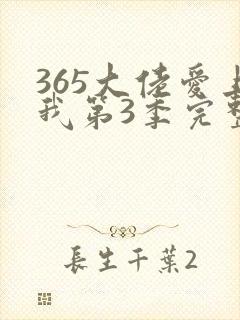 365大佬爱上
我第3季完整
長生千葉2